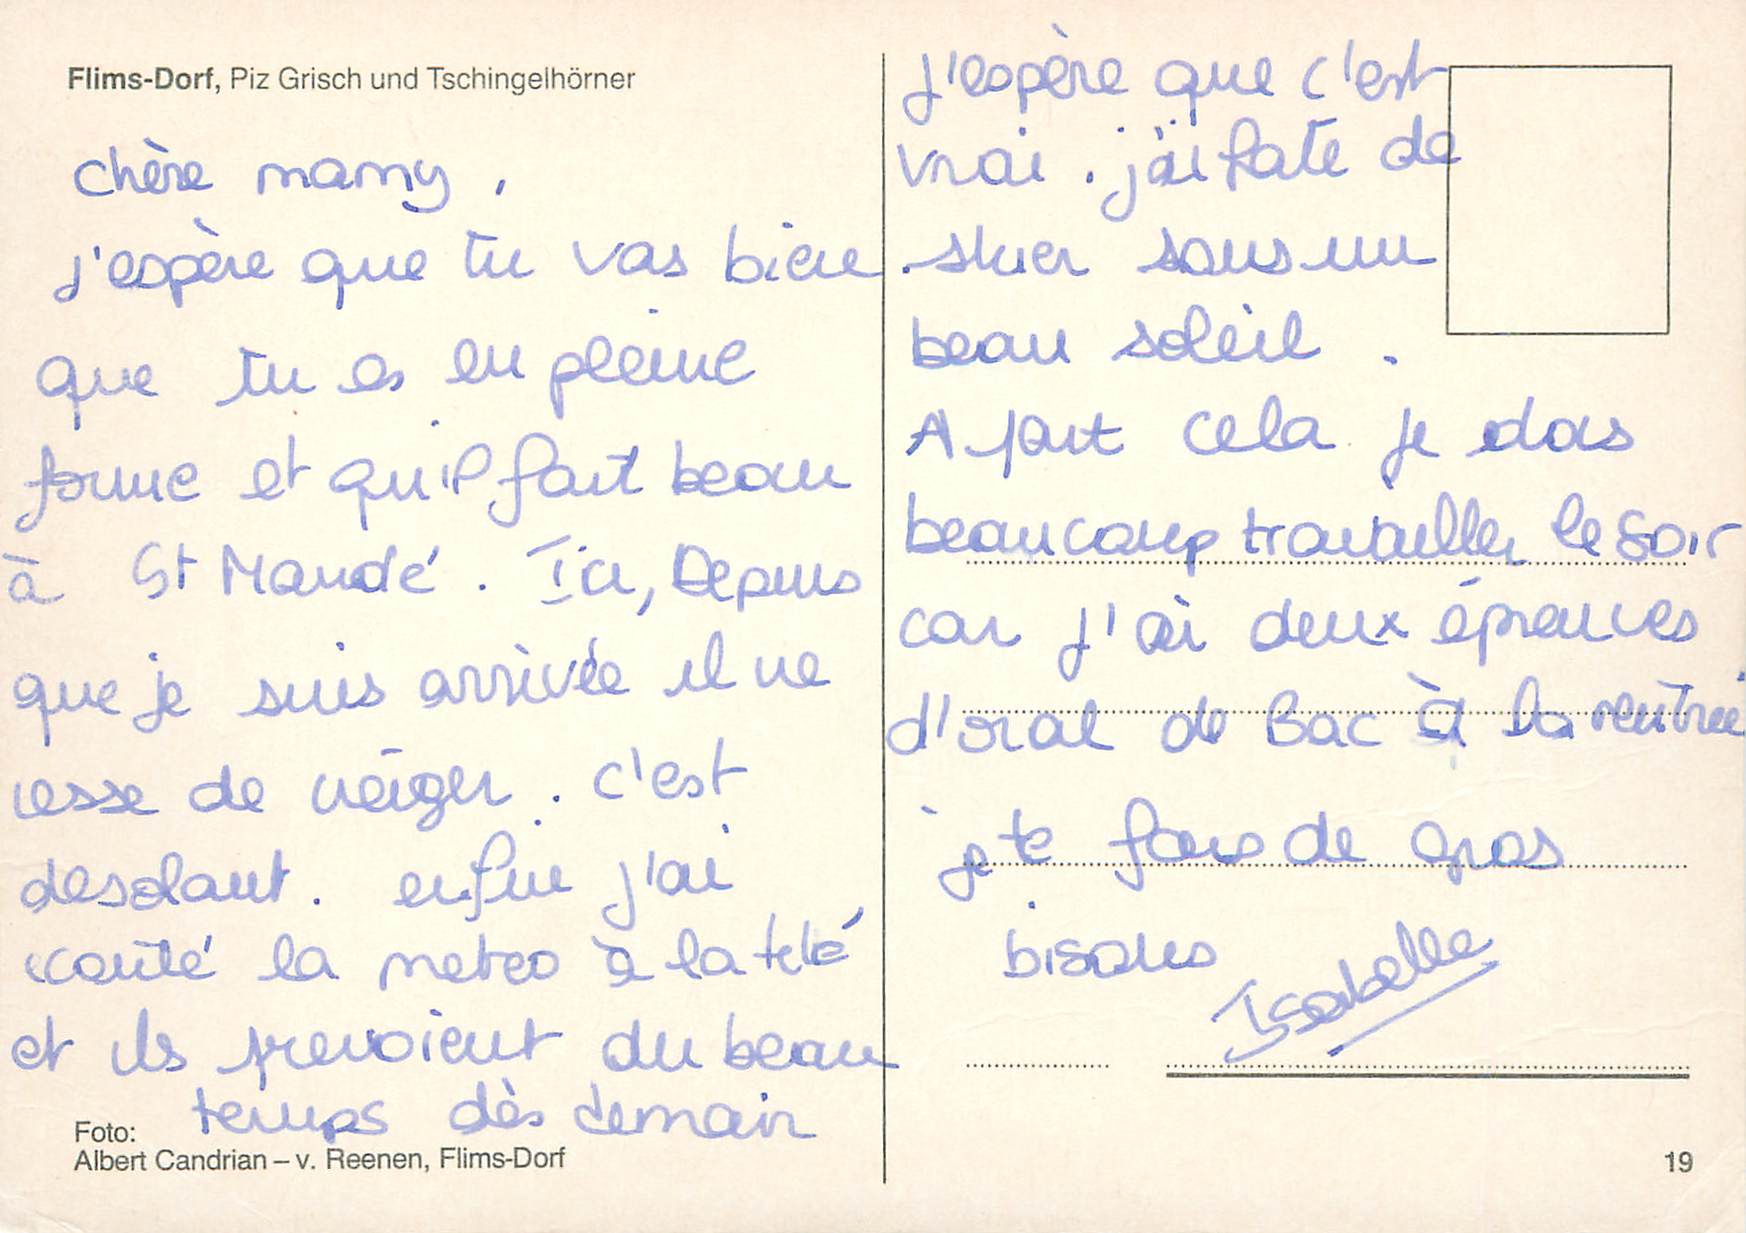 Flims-Dorf, Piz Grisch und Tschingelhörner
chère mamy,
j'espère que tu vas bien
que tu es en pleine
forme et qu'il fait beau
à St Mandé. Ici, Depuis
que je suis arrivée il ne
cesse de neiger. c'est
desolant. enfin j'ai
ecouté la meteo à la télé
et ils prevoient du beau
temps dès demain
Foto:
Albert Candrian – v. Reenen, Flims-Dorf
J'espère que c'est
vrai. j'ai hate de
skier sous un
beau soleil.
A part cela je dois
beaucoup travailler le soir
car j'ai deux épreuves
d'oral de Bac à la rentrée
je te fais de gros
bisous
Isabelle
19